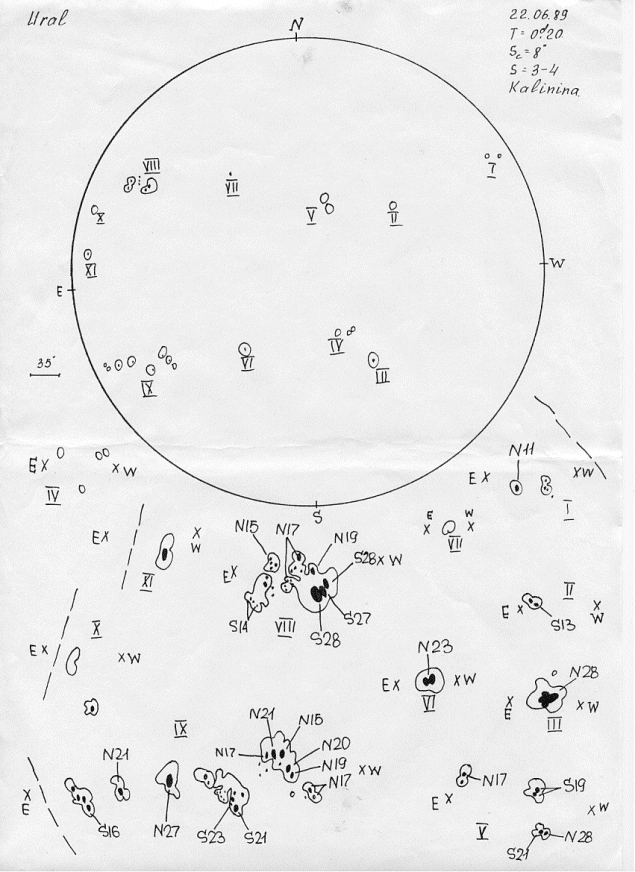 Ural
22.06.89
T = 0ᵈ.20
S꜀ = 8"
S = 3-4
Kalinina
N
I
VIII
VII
X
V
II
XI
E
W
35"
IX
VI
IV
III
S
E X
X W
IV
N11
E X
X W
I
E X
X
W
XI
N15
N17
N19
S28 X W
E X
S14
VIII
S28
S27
E
W
X
X
VII
II
E X
S13
X
W
X
E X
X W
N23
E X
X W
VI
N28
X
E
X W
III
IX
N21
N15
N17
N20
N19
X W
N17
N21
X
E
S16
N27
S23
S21
N17
S19
E X
X W
V
S21
N28